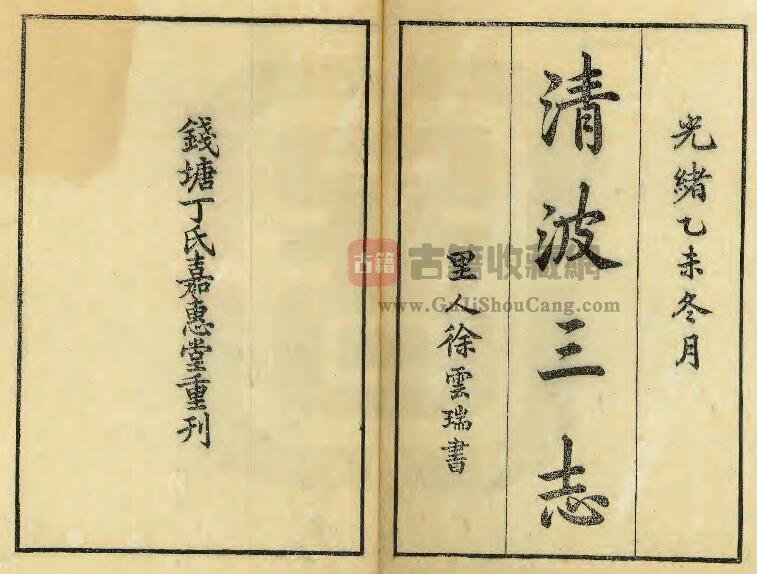 光緒乙未冬月
清波三志
里人徐雲瑞書
錢塘丁氏嘉惠堂重刊
古籍
古籍收藏網
www.GuJiShouCang.com